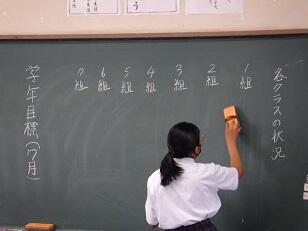 各クラスの状況
1組
2組
3組
4組
5組
6組
7組
学年目標(7月)